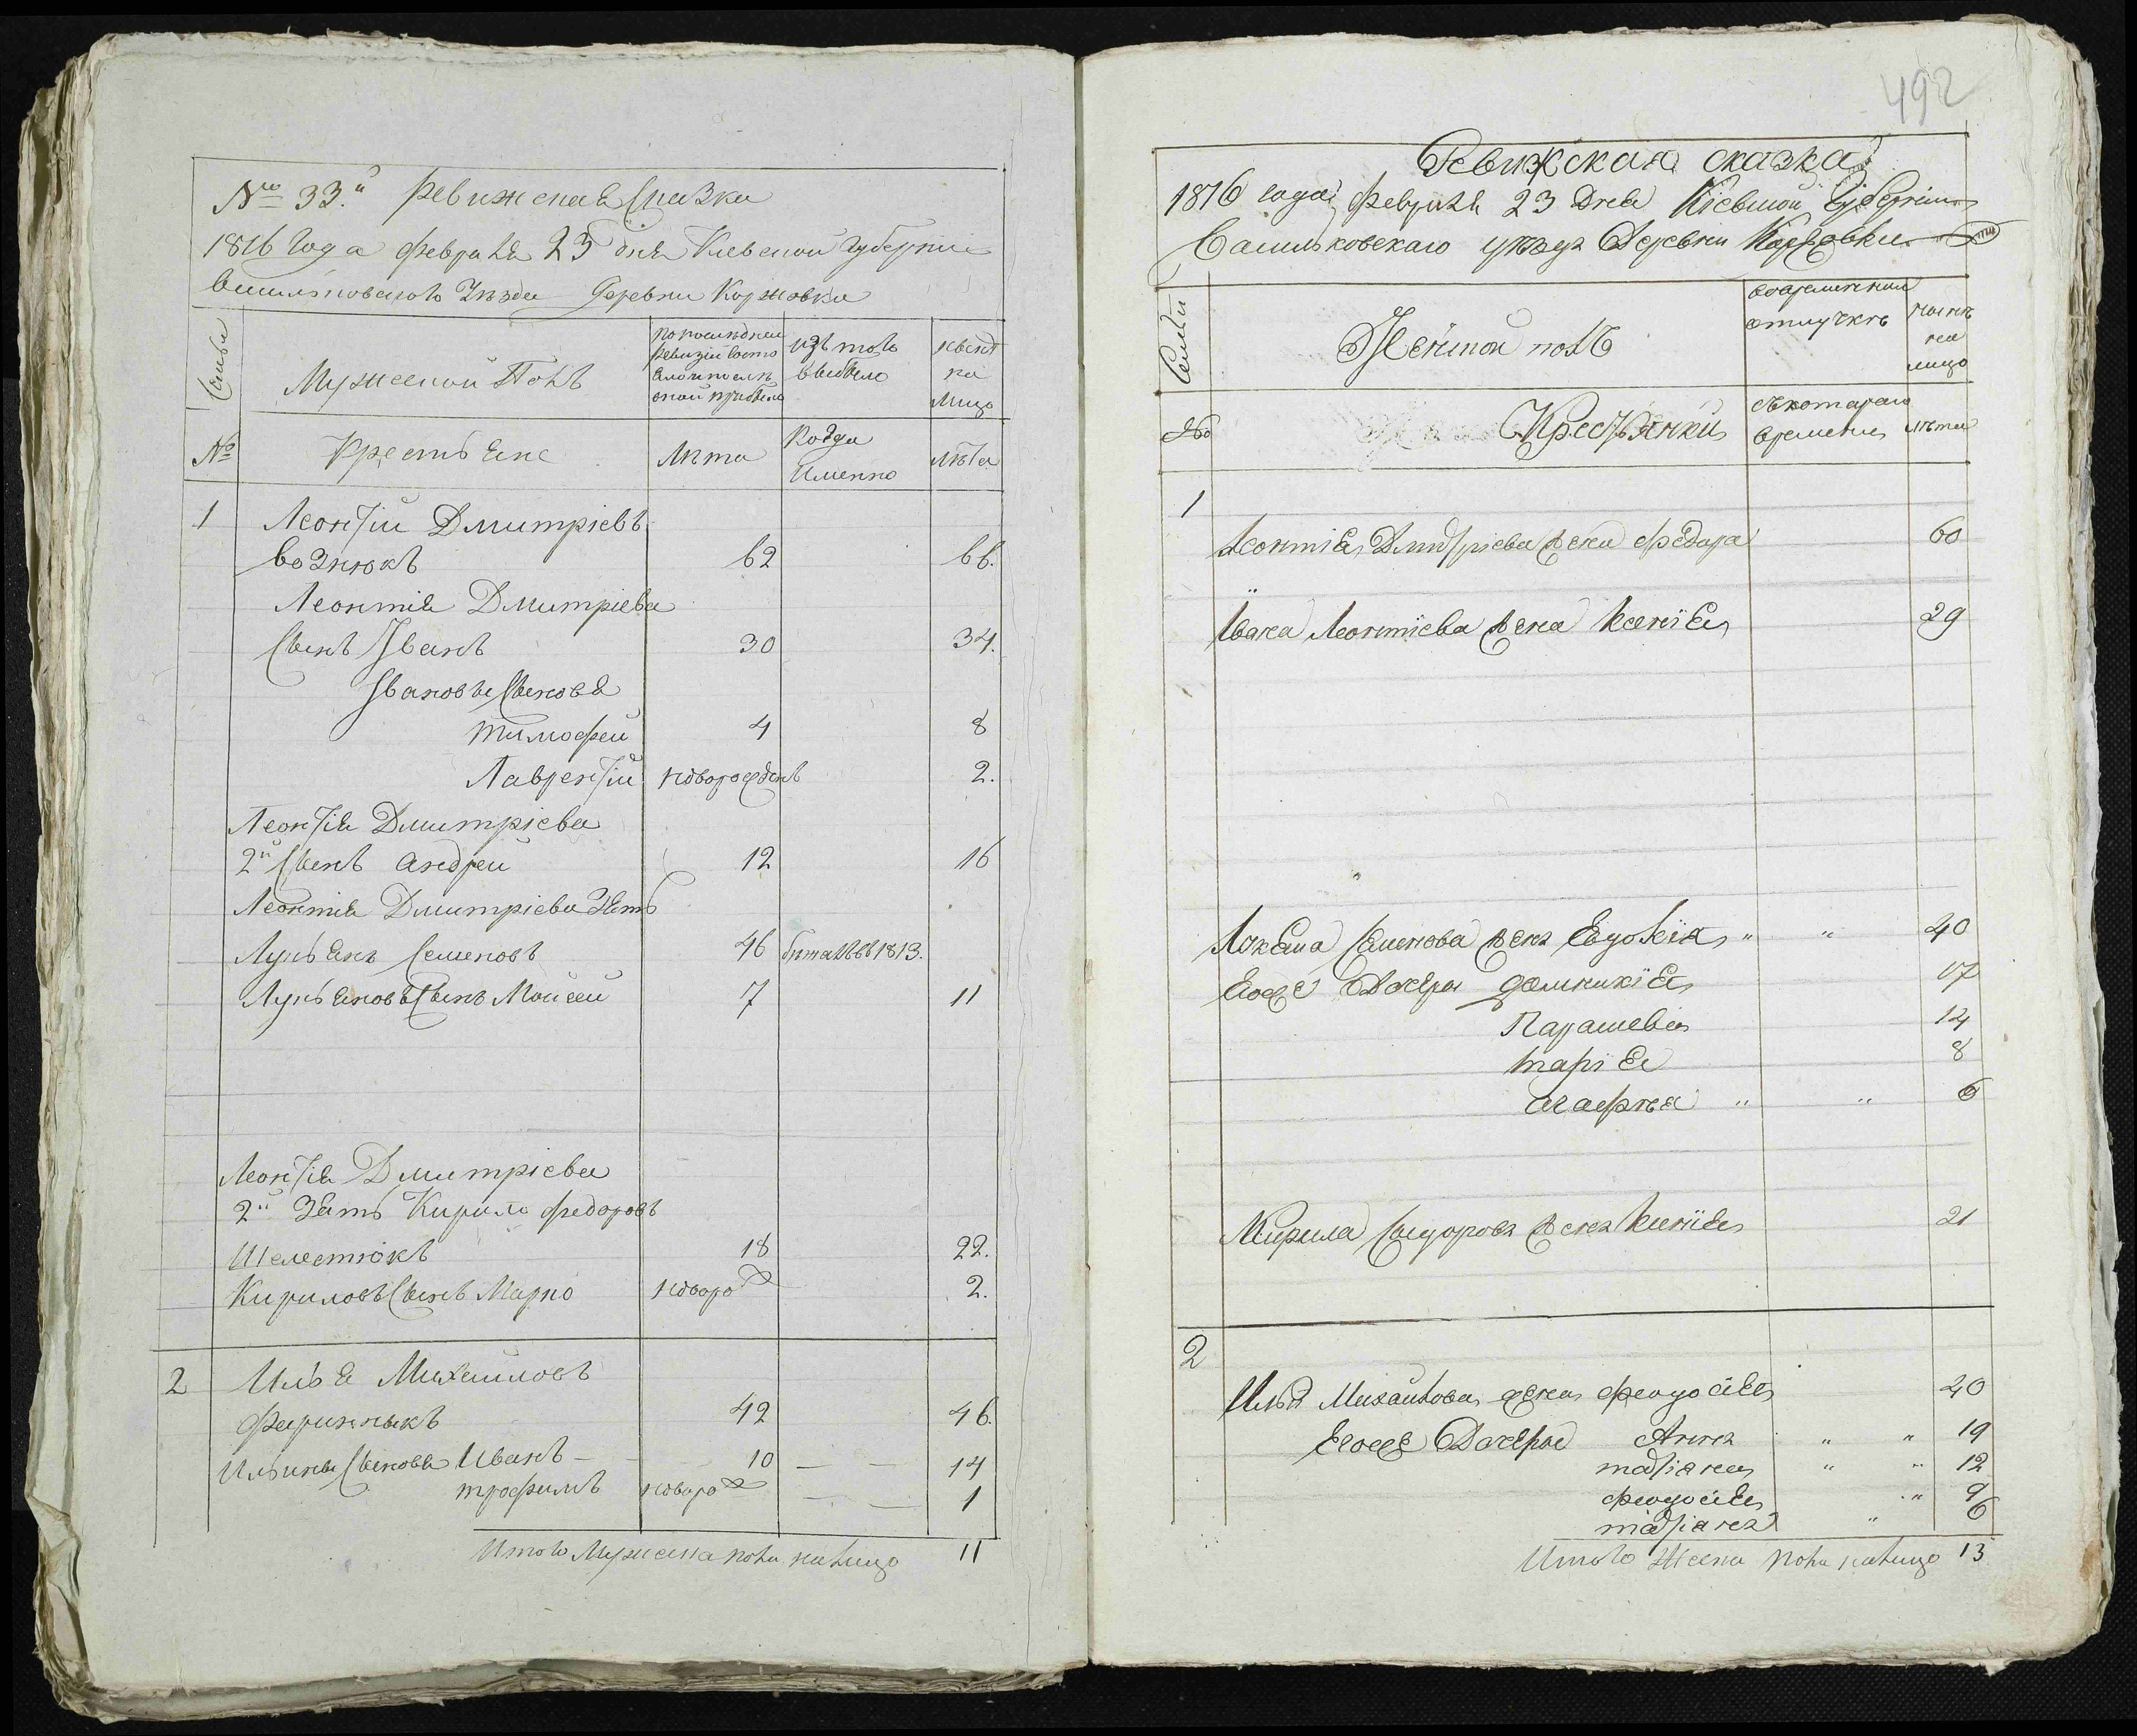 № 33.й Ревижская Сказка
1816 года февраля 23 дня Киевской губернии
Васильковского Уезда Деревни Коржовки
Семьи
Мужеской Полъ
по последней ревизии состояло и после оной прибыло
изъ того выбыло
ныне на лицо
№
Крестьяне
Лета
Когда Именно
лета
1 Леонтій Дмитріевъ
Вознюкъ 62 66.
Леонтія Дмитріева
Сынъ Иванъ 30 34.
Ивановы Сыновя
тимофей 4 8
Лаврентій новорожденъ 2.
Леонтія Дмитріева
2й Сынъ андрей 12 16
Леонтія Дмитріева Зять
Лукьянъ Семеновъ 46 1813.
Лукьяновъ Сынъ Мойсей 7 11
Леонтія Дмитріева
2й Зять Кирило федоровъ
Шелестюкъ 18 22.
Кириловъ Сынъ Марко новоро 2.
2 Илья Михайловъ
42 46.
Ильины Сыновя Иванъ 10 14
трофимъ новоро 1
Итого Мужеска пола налицо 11
492
Ревижская сказка
1816 года февраля 23 Дня Кіевской Губерніи
Васильковскаго уезда Деревни Коржовки
Семьи
Женской полъ
во временной отлучке
ныне на лицо
№
Крестьянки
съ котораго времени
лета
1
Леонтія Дмитріева жена федора 60
Ивана Леонтіева жена Ксенія 29
Лукяна Семенова жена Евдокія " " 40
Егоже Дочери Домникія 17
Парашевія 14
марія 8
агафія " " 6
Кирила жена Ксенія 21
2
Илья Михайлова жена феодосія 40
Егоже Дочери Анна " " 19
маріяна " " 12
феодосія " 9
маріяна " 6
Итого Женска пола налицо 13